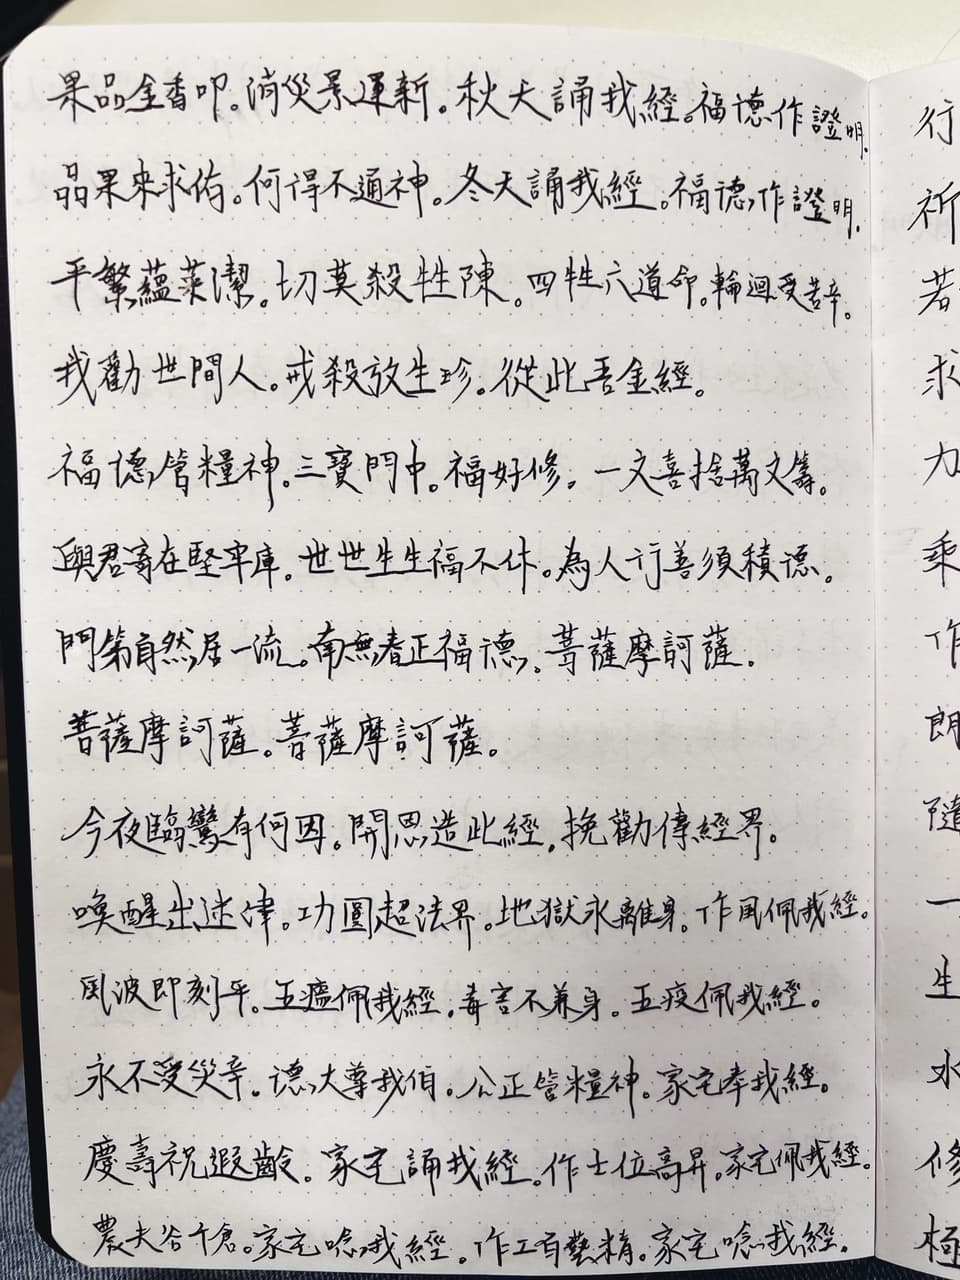 果品全香叩。消災景運新。秋天誦我經。福德作證明.
晶果來求佑。何得不通神。冬天誦我經。福德作證明.
平繁蘊菜潔。切莫殺牲陳。四牲六道命。輪迴受苦辛。
我勸世間人。戒殺放生珍。從此吾金經。
福德管糧神。三寶門中。福好修。一文喜捨萬文籌。
與君寄在堅牢庫。世世生生福不休。為人行善須積德。
門第自然居一流。南無春正福德。菩薩摩訶薩.
菩薩摩訶薩。菩薩摩訶薩。
今夜臨鸞有何因。開恩造此經.挽勸傳經界。
喚醒出迷津。功圓超法界。地獄永離身。作風佩我經。
風波即刻平。五瘟佩我經。毒害不兼身。五疫佩我經。
永不受災辛。德大尊我伯。公正管糧神。家宅奉我經。
慶壽祝遐齡。家宅誦我經。作士位高昇。家宅佩我經。
農夫谷千倉。家宅唸我經。作工百藝精。家宅唸我經。
行
祈
若
求
力
乘
作
朗
隨
一
生
水
修
極